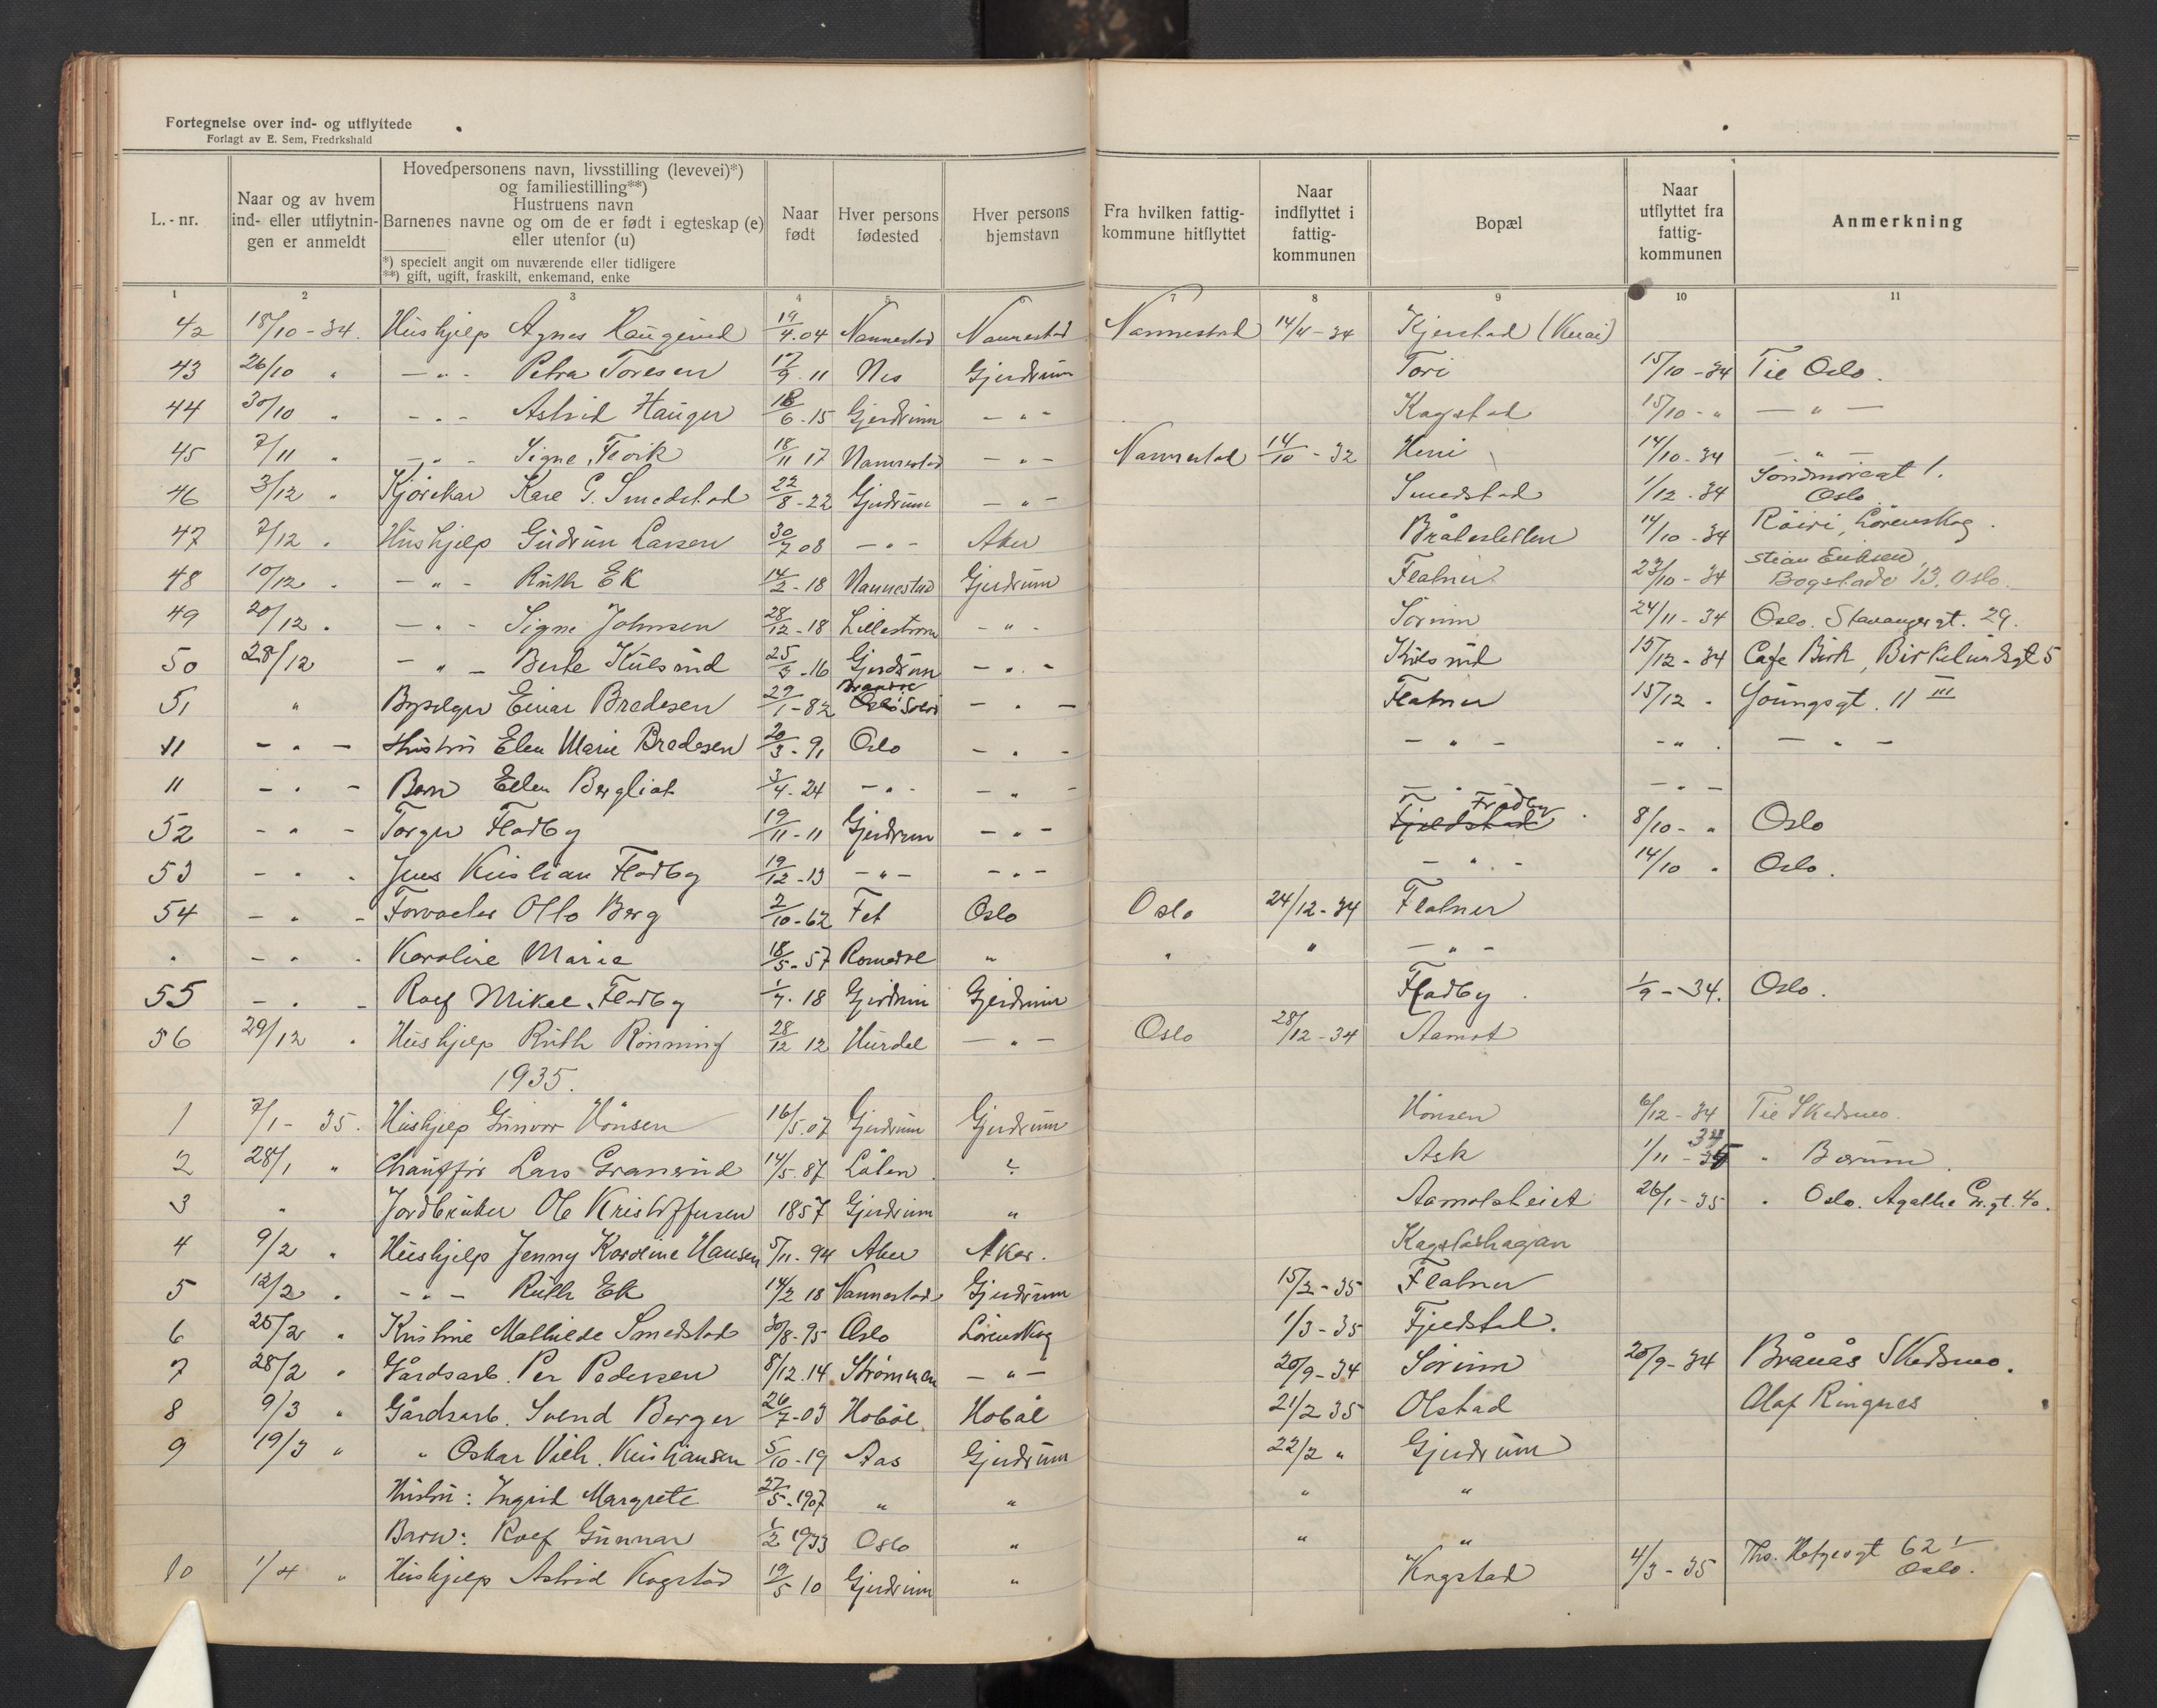 Fortegnelse over ind- og utflyttede
Forlagt av E. Sem, Fredrkshald
L.-nr.
Naar og av hvem ind- eller utflytnin- gen er anmeldt
Hovedpersonens navn, livsstilling (levevei)*)
og familiestilling**)
Hustruens navn
Barnenes navne og om de er født i egteskap (e)
eller utenfor (u)
*) specielt angit om nuværende eller tidligere
**) gift, ugift, fraskilt, enkemand, enke
Naar født
Hver persons fødested
Hver persons hjemstavn
Fra hvilken fattig- kommune hitflyttet
Naar indflyttet i fattig- kommunen
Bopæl
Naar utflyttet fra fattig- kommunen
Anmerkning
1 2 3 4 5 6 7 8 9 10 11
42 18/10-34. Hushjelp Agnes Haugerud 19/4.04 Nannestad Nannestad Nannestad 14/4-34 Kjerstad
43 26/10 " -"- Petra Toresen 17/9.11 Nes Gjerdrum Tori 15/10-34 Til Oslo.
44 30/10 " -"- Astrid Hauger 18/6.15 Gjerdrum -"- Kagstad 15/10-" -"-
45 7/11 " -"- Signe Florik 18/11 17 Nannestad -"- Nannestad 14/10-32 Heni 14/10-34 -"-
46 3/12 " Kjørekar Kare G. Smedstad 22/8-22 Gjerdrum -"- Smedstad 1/12-34 Sondmøregt 1. Oslo
47 7/12 " Hushjelp Gudrun Larsen 30/7 08 -"- Aker Bråtesletten 14/10-34 Røiri, Lörenskog.
48 10/12 " -"- Ruth Ek 14/2-18 Nannestad Gjerdrum Flatner 23/10-34 Stian Eriksen Bogstadv 13. Oslo.
49 20/12 " -"- Signe Johnsen 28/12-18 Lillestrøm -"- Sørum 24/11-34 Oslo. Stavangergt. 29.
50 28/12 -"- Berte Kulsrud 25/3-16 Gjerdrum -"- Kulsrud 15/12-34 Cafe Birk, Birkelundsgt 5
51 " Einar Bredesen 29/1-82 -"- Flatner 15/12 " Youngsgt. 11 III
11 -"- Hustru Elen Marie Bredesen 20/3-91 Oslo -"- -"- -"- -"-
11 -"- Barn Ellen Bergliot 3/4-24 -"- -"- -"- -"-
52 -"- Torger Fladby 19/11-11 Gjerdrum -"- Fjeldstad Fladby 8/10-" Oslo
53 -"- Jens Kristian Fladby 19/12-13 -"- -"- -"- 14/10 " Oslo.
54 -"- Forvalter Otto Berg 2/10-62 Fet Oslo Oslo 24/12-34 Flatner
" -"- Karoline Marie 18/5-57 Romedal " " " -"-
55 -"- Rolf Mikal Fladby 1/7.18 Gjerdrum Gjerdrum Fladby 1/9-34. Oslo.
56 29/12 " Hushjelp Ruth Rønning 28/12 12 Hurdal -"- Oslo 28/12-34 Aamot
1935.
1 7/1-35. Hushjelp Gunvor Hönsen 16/5.07 Gjerdrum Gjerdrum Hönsen 6/12-34 Til Skedsmo.
2 28/1 " Chauffør Lars Gransrud 14/5.87 Løten ? Ask 1/11-34 " Bærum.
3 " Jordbruker Ole Kristoffersen 1857 Gjerdrum " Aamotsheiet 26/1-35 " Oslo. Agathe Gr.gt. 40.
4 9/2 " Hushjelp Jenny Karoline Hansen 5/11-94 Aker Aker. Kagstadhagan
5 12/2 " -"- Ruth Ek 14/2 18 Nannestad Gjerdrum 15/2-35 Flatner
6 25/2 " Kristine Mathilde Smedstad 30/8-95 Oslo Lörenskog 1/3-35 Fjelstad.
7 28/2 " Gårdsarb. Per Pedersen 8/12.14 Strømmen -"- 20/9-34 Sørum 20/9-34 Brånås Skedsmo.
8 9/3 " Gårdsarb. Svend Berger 26/7-03 Hobøl Hobøl 21/2 35 Olstad Olaf Ringnes
9 19/3 " " Oskar Vilh. Kristiansen 5/10-19 Aas Gjerdrum 22/2 " Gjerdrum
Hustru: Ingrid Margrete 27/5-1907 " " " "
Barn: Rolf Gunnar 1/2 1933 Oslo " " "
10 1/4 " Hushjelp Astrid Kogstad 19/5 10 Gjerdrum " Kogstad 4/3-35 Ths. Heftyesgt 62 I Oslo.